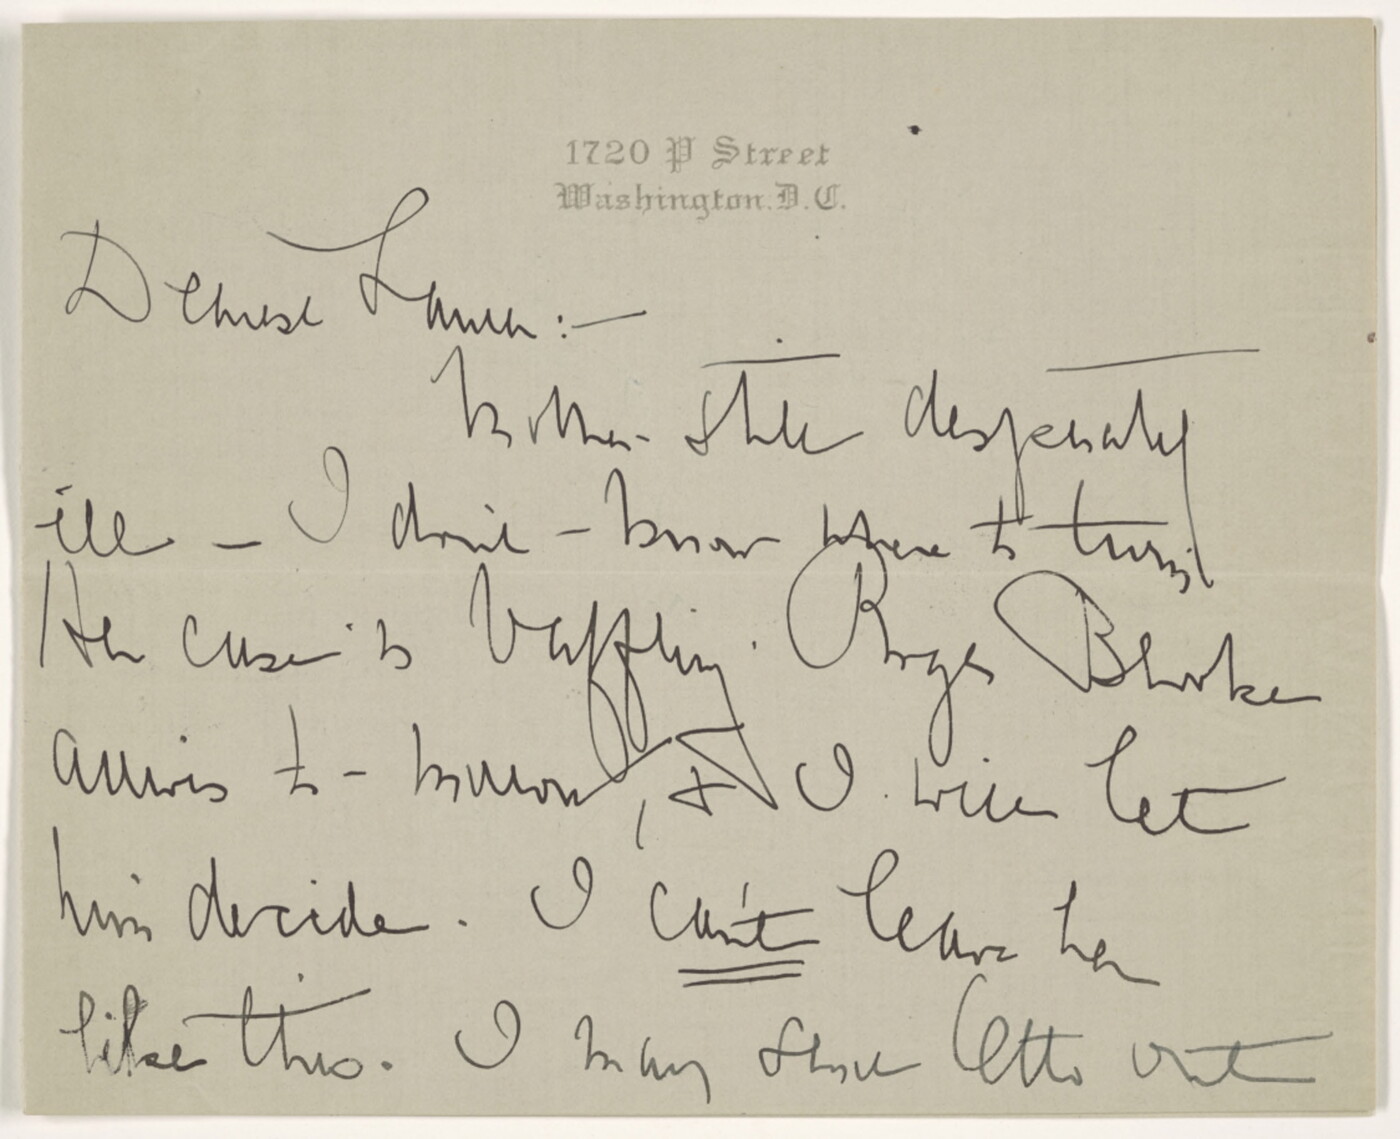 1720 P Street
Washington. D.C.
Dearest Laura:—
Mother still desperately
ill — I don't – know where to turn.
Her case is baffling. Roger Brooke
arrives to-morrow, & I will let
him decide. I can't leave her
like this. I may Otto out